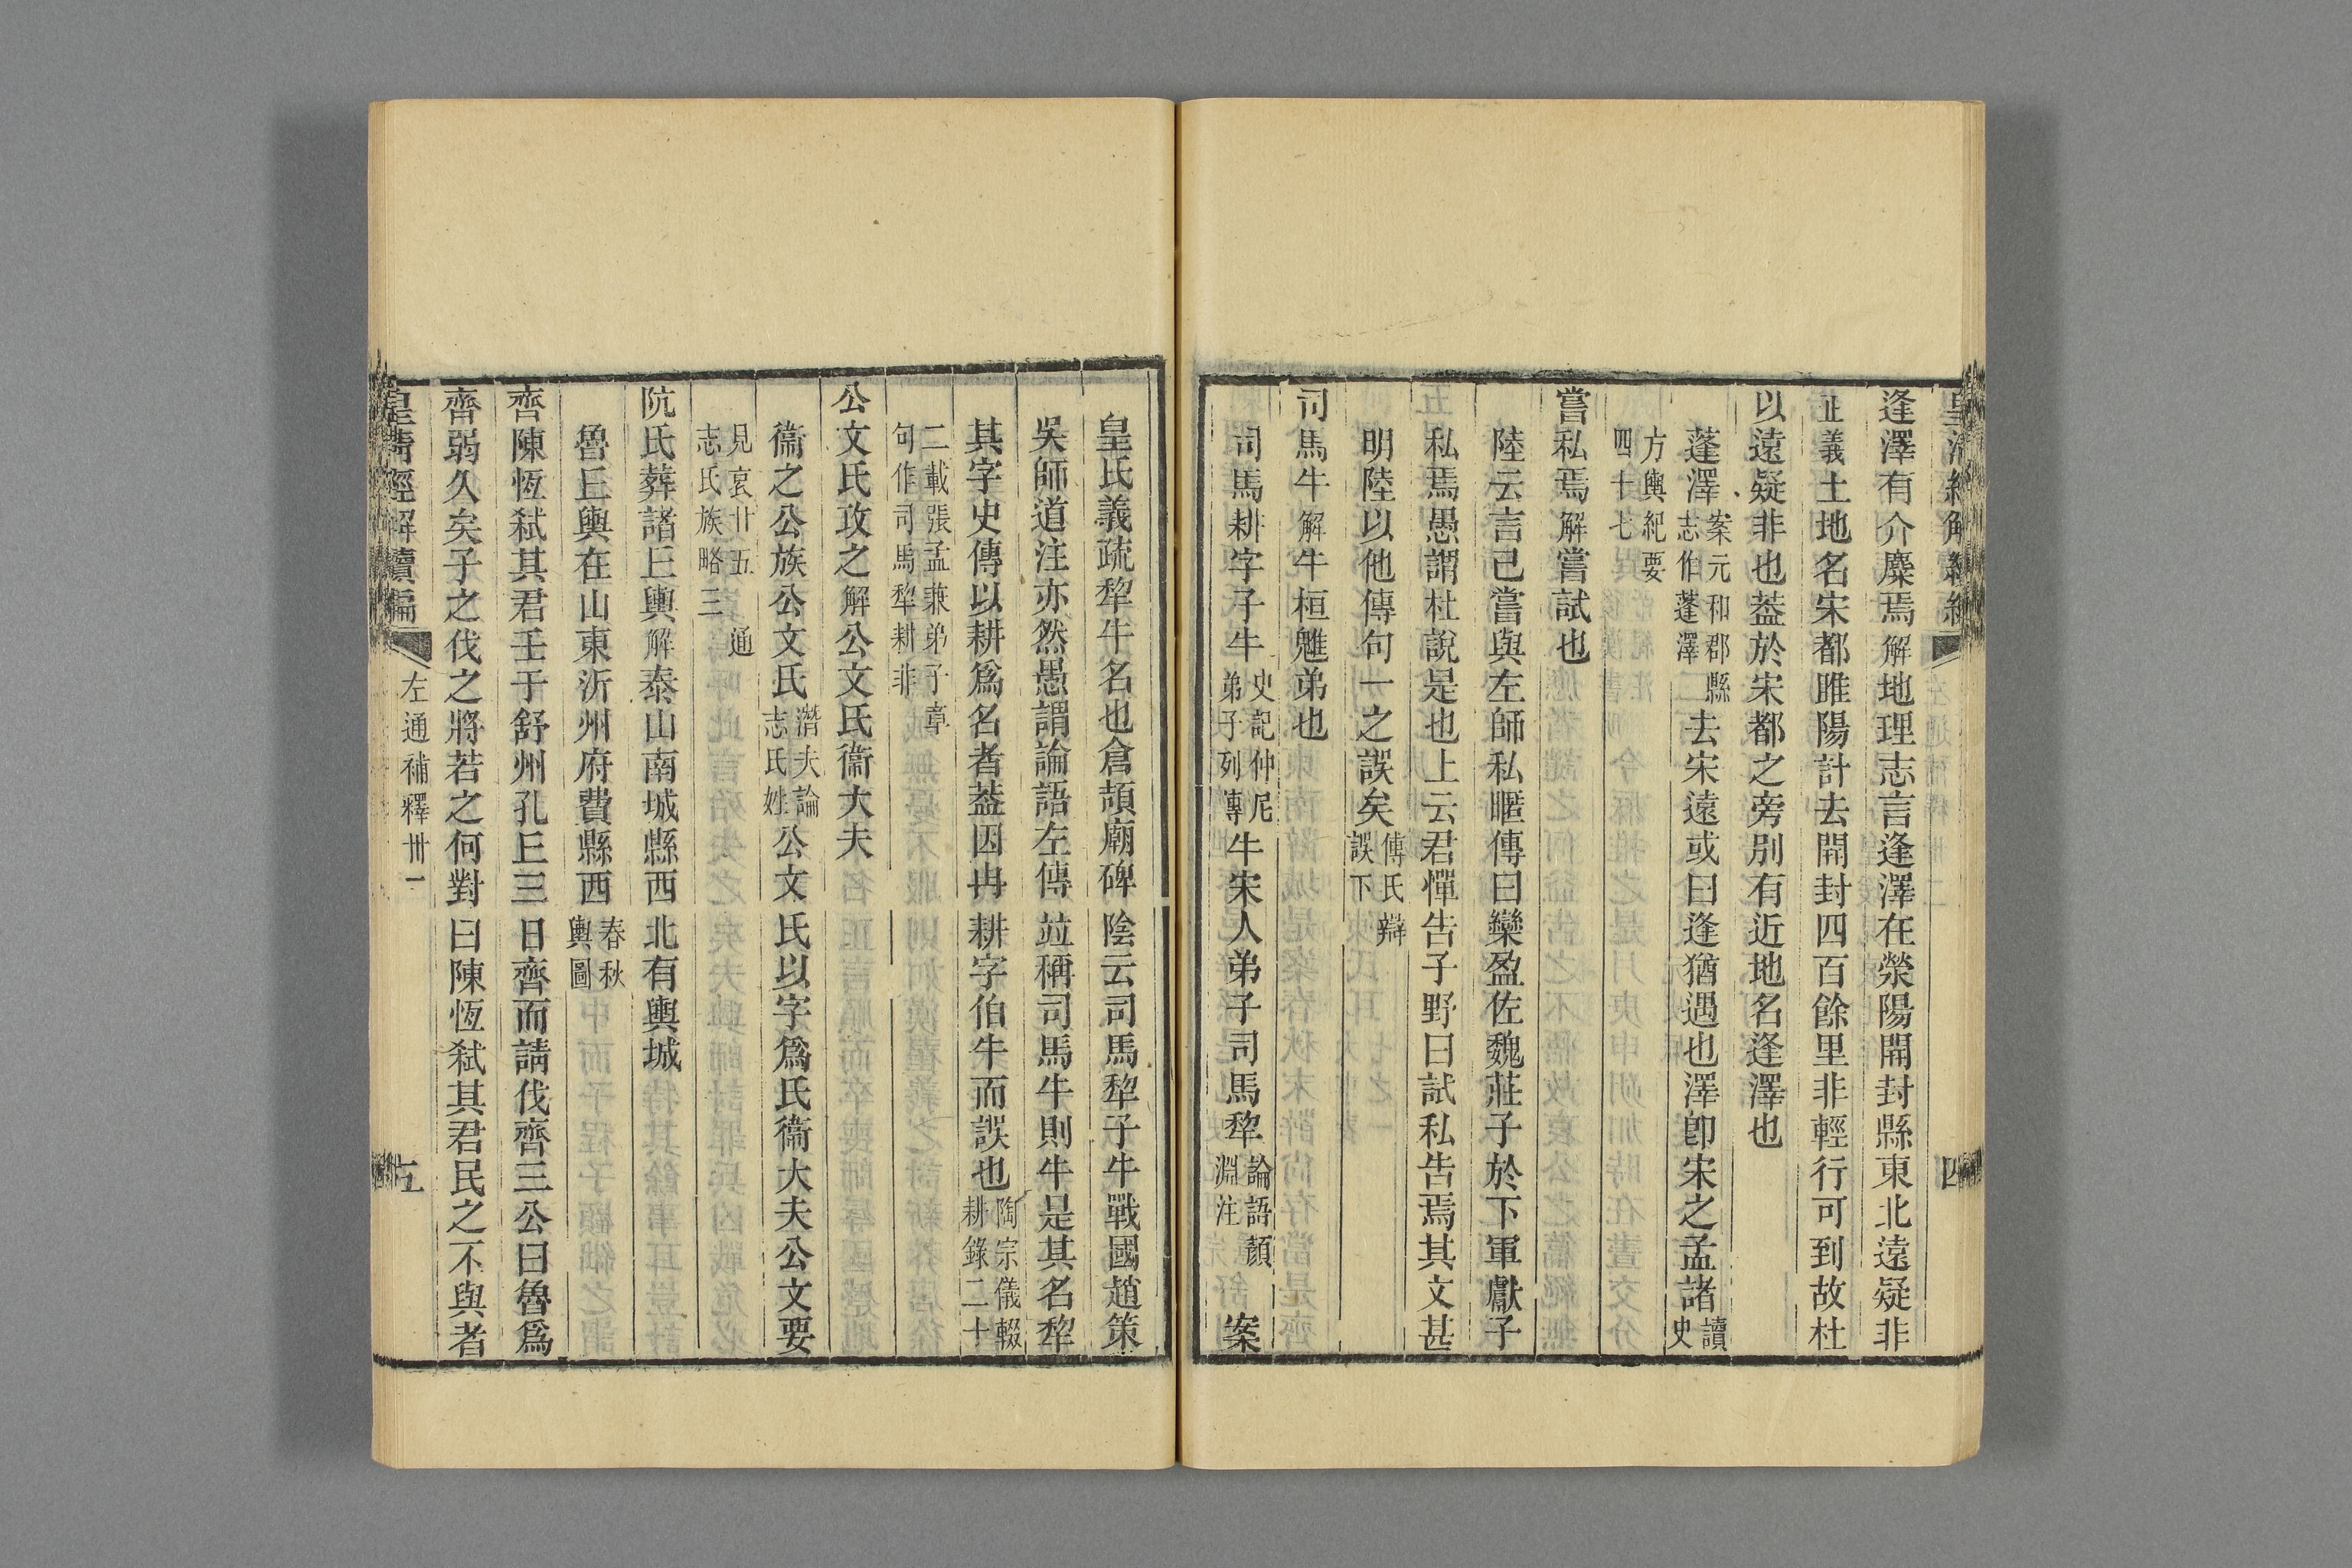 逢澤有介麋焉解地理志言逢澤在滎陽開封縣東北遠疑非
正義土地名宋都睢陽計去開封四百餘里非輕行可到故杜
以遠疑非也葢於宋都之旁別有近地名逢澤也
蓬澤案元和郡縣志作蓬澤二去宋遠或曰逢猶遇也澤卽宋之孟諸讀史
方輿紀要四十七
嘗私焉解嘗試也
陸云言己嘗與左師私暱傳曰欒盈佐魏莊子於下軍獻子
私焉愚謂杜說是也上云君憚告子野曰試私告焉其文甚
明陸以他傳句一之誤矣傅氏辯誤下
司馬牛解牛桓魋弟也
司馬耕字子牛史記仲尼弟子列傳牛宋人弟子司馬犂論語顏淵注案
皇氏義疏犂牛名也倉頡廟碑陰云司馬犂子牛戰國趙策
吳師道注亦然愚謂論語左傳竝稱司馬牛則牛是其名犂
其字史傳以耕爲名者葢因冉耕字伯牛而誤也陶宗儀輟耕錄二十
二載張孟兼弟子章句作司馬犂耕非
公文氏攻之解公文氏衞大夫
衞之公族公文氏潛夫論志氏姓公文氏以字爲氏衞大夫公文要
見哀廿五通志氏族略三
阬氏葬諸丘輿解泰山南城縣西北有輿城
魯丘輿在山東沂州府費縣西春秋輿圖
齊陳恆弒其君壬于舒州孔丘三日齊而請伐齊三公曰魯爲
齊弱久矣子之伐之將若之何對曰陳恆弒其君民之不與者
皇清經解續編
左通補釋卅一
五